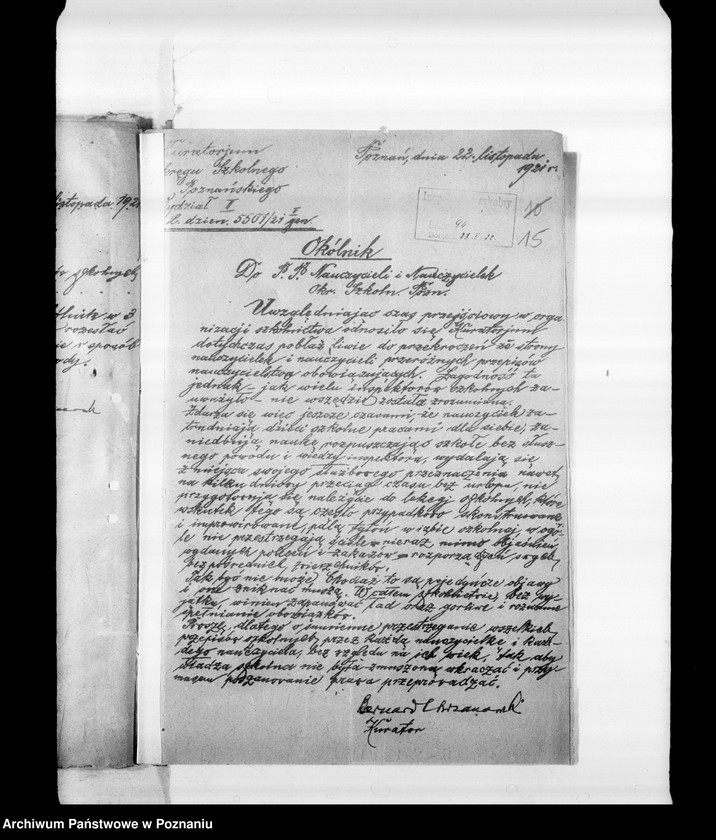 Kuratorjum
Okręgu Szkolnego
Poznańskiego
Wydział I
L. dzien. 5501/21 I gen.
Poznań, dnia 22. listopada
1921 r.
szkolny
46
28.X.22.
10
15
Okólnik
Do P. P. Nauczycieli i Nauczycielek
Okr. Szkoln. Pozn.
Uwzględniając czas przejściowy w orga-
nizacji szkolnictwa odnosiło się Kuratorjum
dotychczas pobłażliwie do przekroczeń ze strony
nauczycielek i nauczycieli przeróżnych przepisów
nauczycielstwo obowiązujących. Łagodność ta
jednak – jak wielu inspektorów szkolnych za-
uważyło – nie wszędzie została zrozumiana.
Zdarza się więc jeszcze czasami, że nauczyciele za-
trudniają dzieci szkolne pracami dla siebie, za-
niedbują naukę, rozpuszczając szkołę bez słusz-
nego powodu i wiedzy inspektora, wydalają się
z miejsca swojego służbowego przeznaczenia nawet
na kilkudniowy przeciąg czasu bez urlopu, nie
przygotowują się należycie do lekcji szkolnych, które
wskutek tego są często przypadkowo skonstruowane
i improwizowane, palą tytoń w izbie szkolnej, w ogó-
le nie przestrzegają ściśle nieraz mimo
wydanych poleceń i zakazów – rozporządzeń swych
bezpośrednich zwierzchników.
Tak być nie może. Chociaż to są pojedyncze objawy
i one zniknąć muszą. W całem szkolnictwie, bez wy-
jątku, winien zapanować ład oraz gorliwe i rozumne
spełnianie obowiązków.
Proszę, dlatego o sumienne przestrzeganie wszelkich
przepisów szkolnych przez każdą nauczycielkę i każ-
dego nauczyciela, bez względu na ich wiek, tak aby
władza szkolna nie była zmuszona wkraczać i przy-
musem poszanowanie prawa przeprowadzać.
Bernard Chrzanowski
Kurator
listopada 1921
szkolnych
w 3
rozesłać
Archiwum Państwowe w Poznaniu